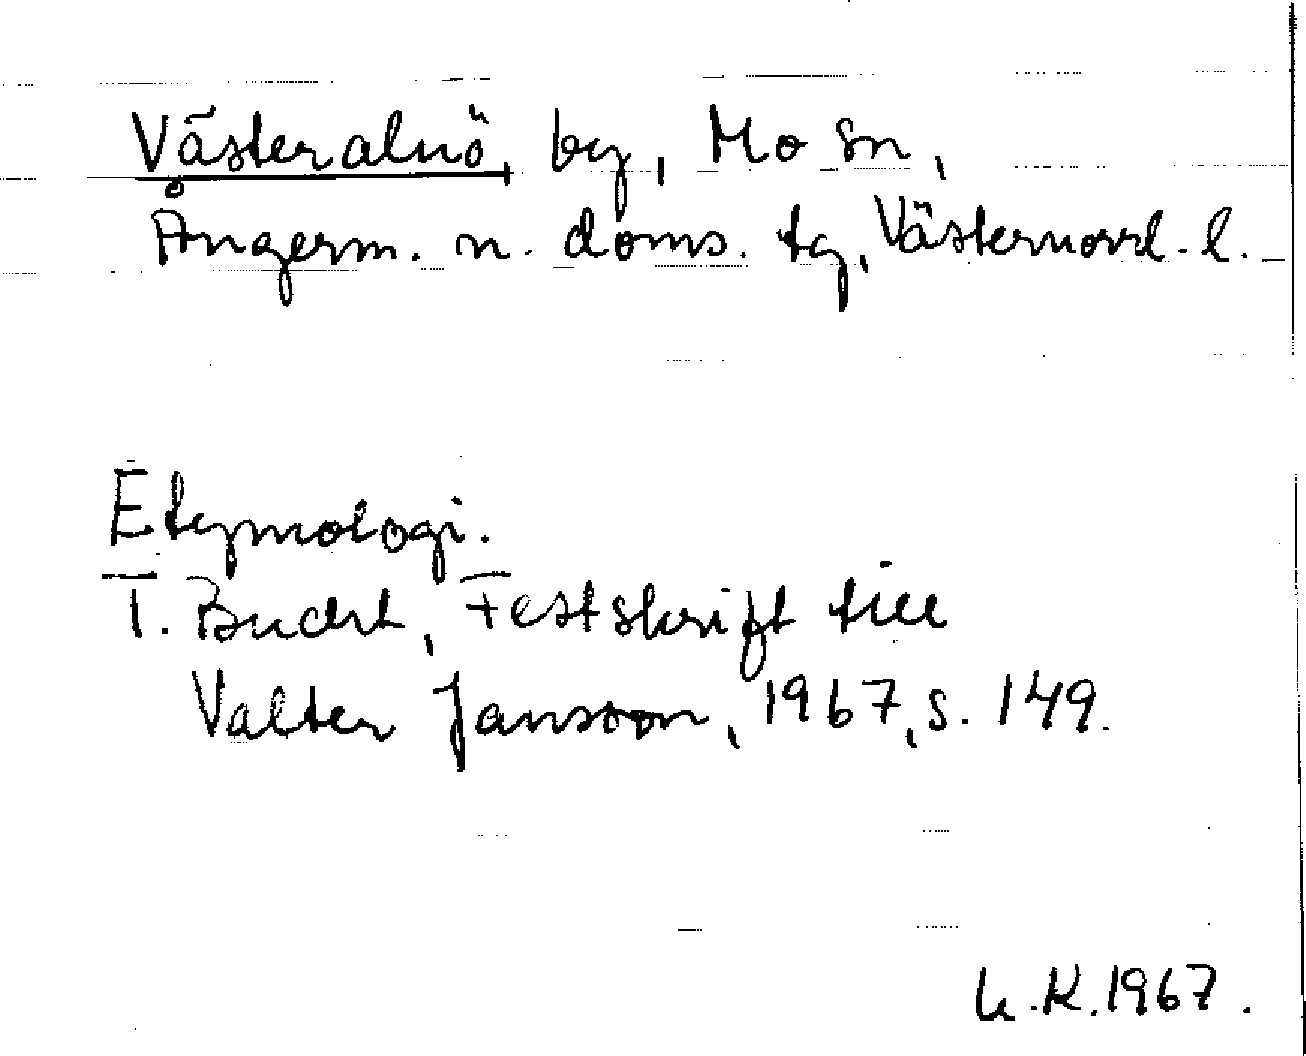 Västeralnö, by, Mo sn,
Ångerm. n. doms. tg, Västernorrl. l.
Etymologi.
T. Bucht, Festskrift till
Valter Jansson, 1967, s. 149.
K. 1967.